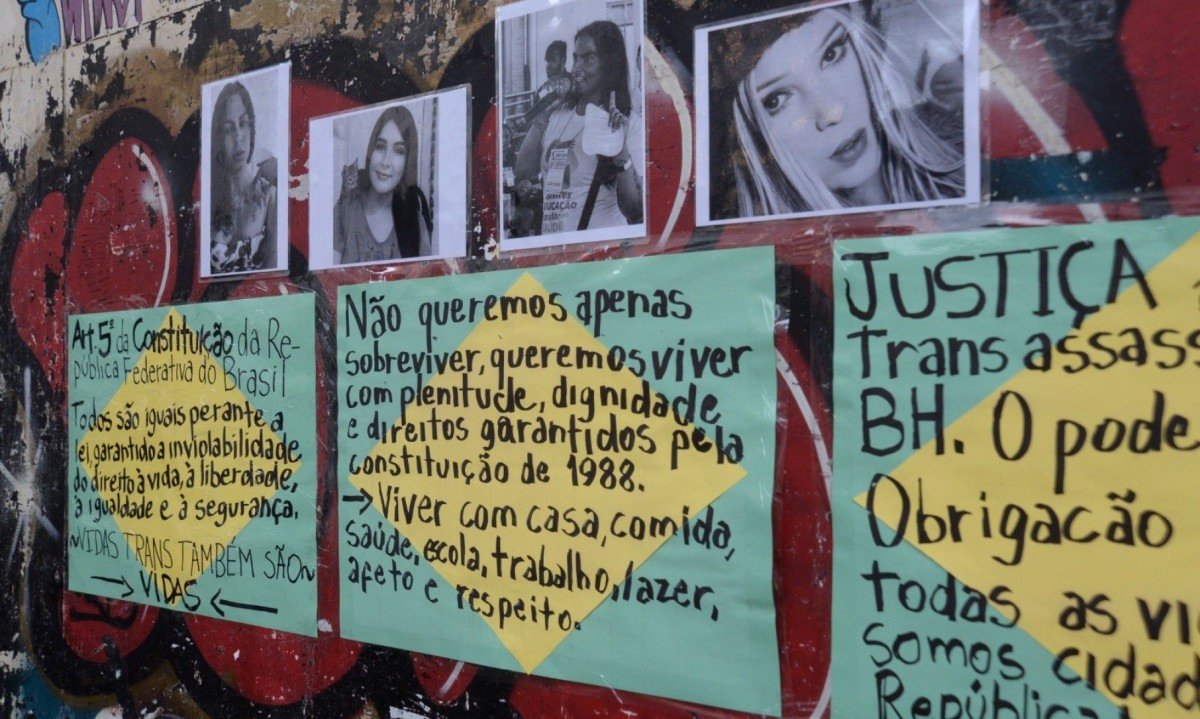 EDUCAÇÃO
Art. 5º da Constituição da Re-
pública Federativa do Brasil
Todos são iguais perante a
lei, garantido a inviolabilidade
do direito à vida, à liberdade,
à igualdade e à segurança.
~VIDAS TRANS TAMBÉM SÃO~
→ VIDAS ←
Não queremos apenas
sobreviver, queremos viver
com plenitude, dignidade
e direitos garantidos pela
constituição de 1988.
→ Viver com casa, comida,
saúde, escola, trabalho, lazer,
afeto e respeito.
JUSTIÇA
Trans assass
BH. O pode
Obrigacão
todas as vi
somos cidad
República